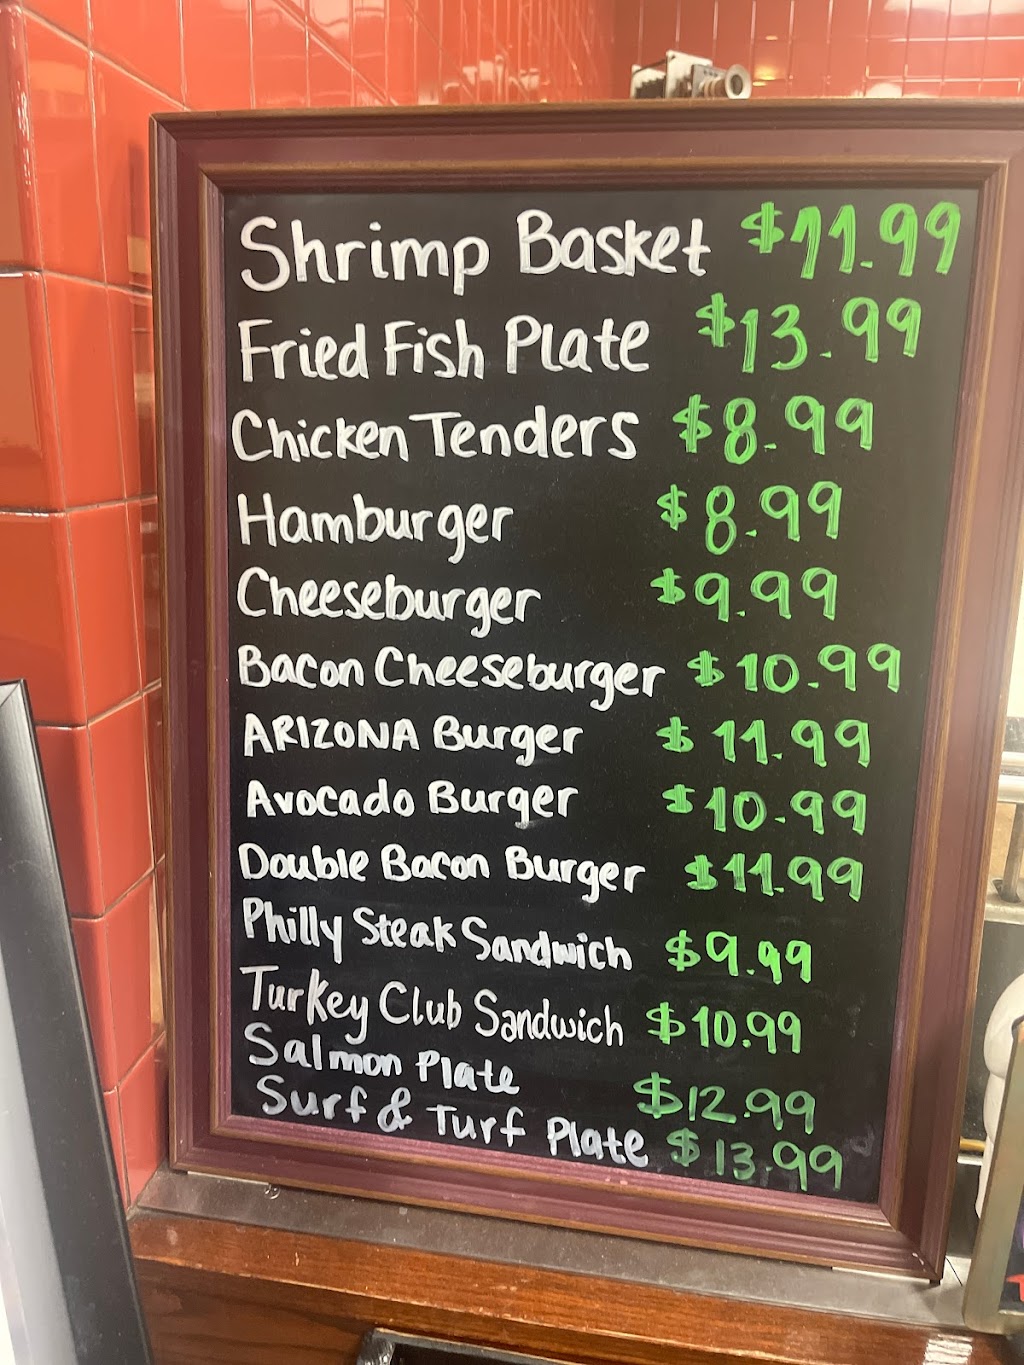 Shrimp Basket $11.99
Fried Fish Plate $13.99
Chicken Tenders $8.99
Hamburger $8.99
Cheeseburger $9.99
Bacon Cheeseburger $10.99
ARIZONA Burger $11.99
Avocado Burger $10.99
Double Bacon Burger $11.99
Philly Steak Sandwich $9.99
Turkey Club Sandwich $10.99
Salmon Plate $12.99
Surf & Turf Plate $13.99